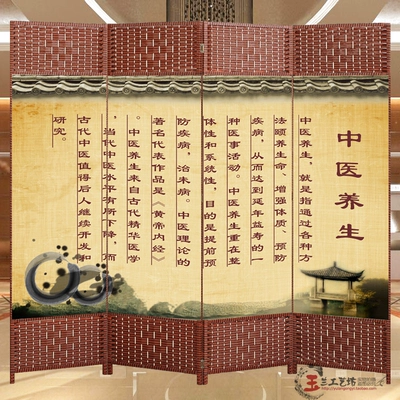 中医养生
中医养生，就是指通过各种方
法颐养生命、增强体质、预防
疾病，从而达到延年益寿的一
种医事活动。中医养生重在整
体性和系统性，目的是提前预
防疾病，治未病。中医理论的
著名代表作品是《黄帝内经》
。中医养生来自古代精华医学
，当代中医水平有所下降，而
古代中医值得后人继续开发和
研究。
玉兰工艺坊